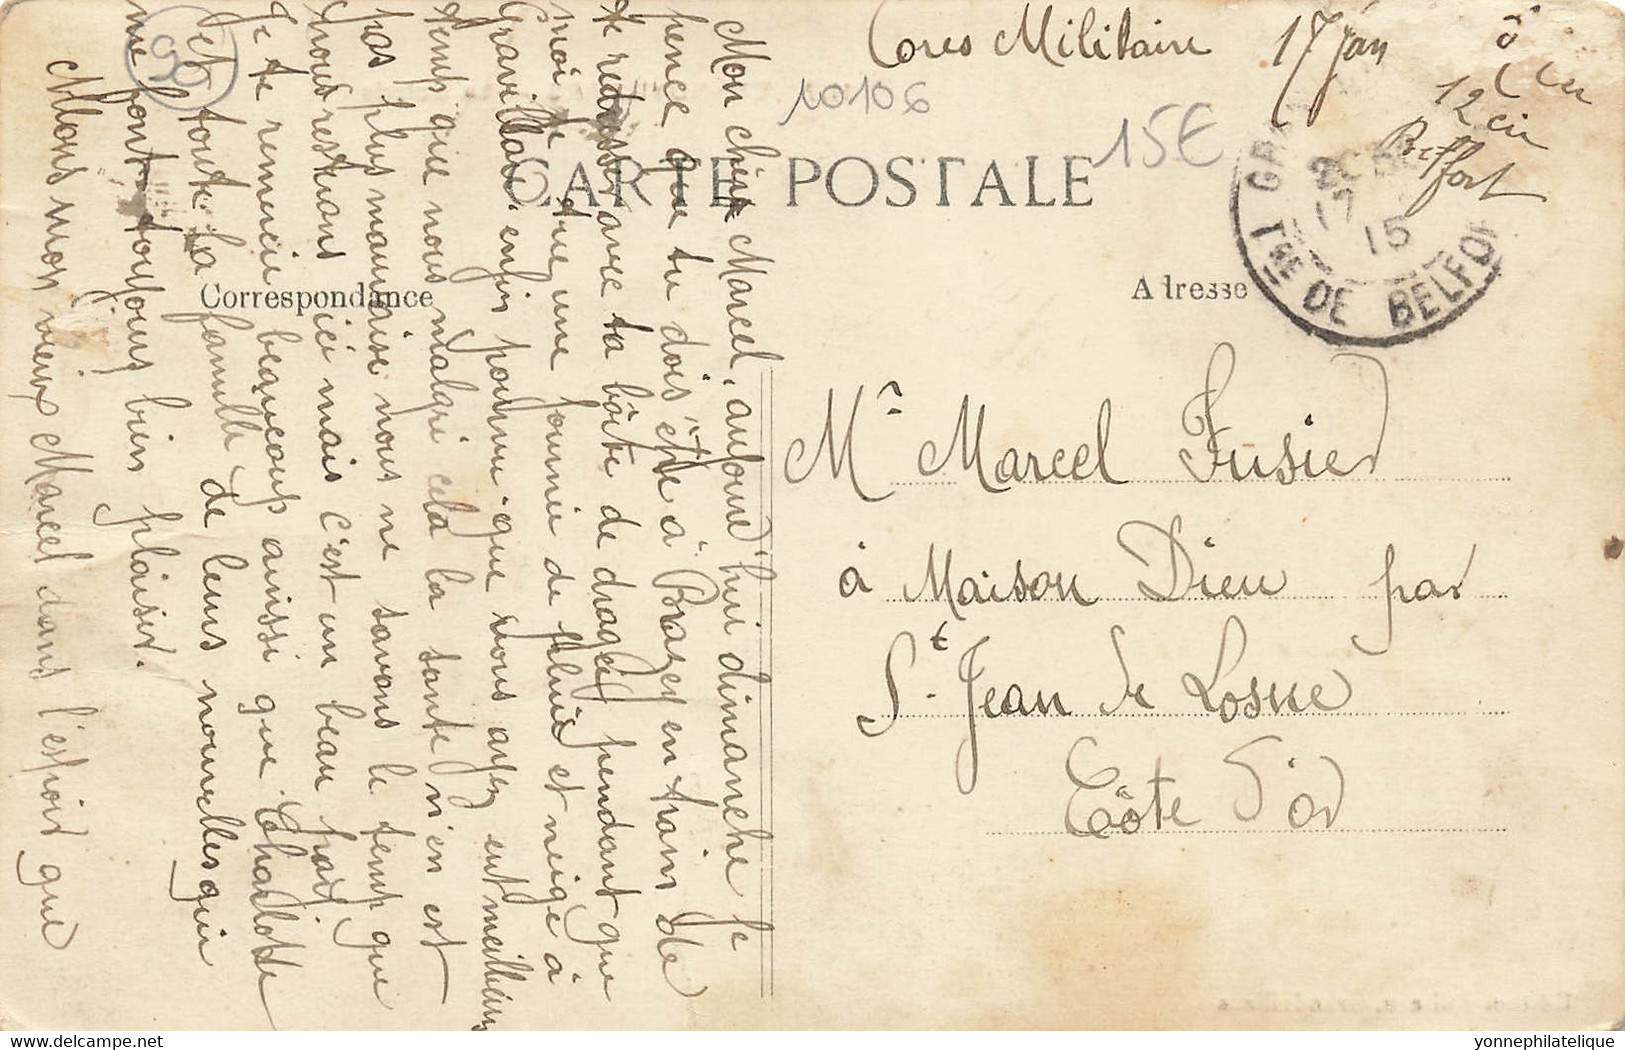 Cores Militaire 17 Jan
12 cir
Belfort
10106
15€
90
CARTE POSTALE
Correspondance
Adresse
GR
17
15
Tre DE BELFORT
Mon cher Marcel, aujourd'hui dimanche je
pence que tu dois être à Brazey en train de
te redresser avec ta boîte de dragées pendant que
moi je tue une journée de pluie et neige à
Gravillars enfin pourvu que vous ayez eut meilleurs
temp que nous malgré cela la santé n'en est
pas plus mauvaise nous ne savons le temp que
nous restrons ici mais c'est un beau pays
Je te remercie beaucoup ainssi que Charlotte
et toute la famille de leurs nouvelles qui
me font toujours bien plaisir.
Allons mon vieux Marcel dans l'espoir que
Mr Marcel Fusier
à Maison Dieu par
St. Jean de Losne
Côte d'or
yonnephilatelique